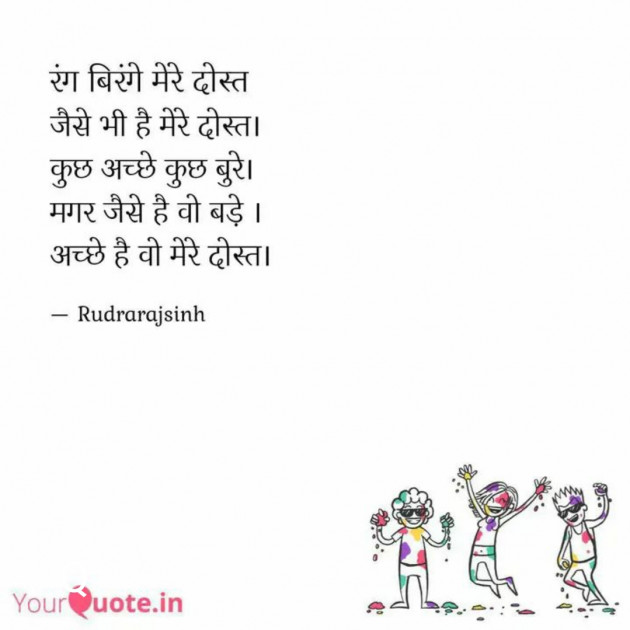 रंग बिरंगे मेरे दोस्त
जैसे भी है मेरे दोस्त।
कुछ अच्छे कुछ बुरे।
मगर जैसे है वो बड़े ।
अच्छे है वो मेरे दोस्त।
— Rudrarajsinh
YourQuote.in